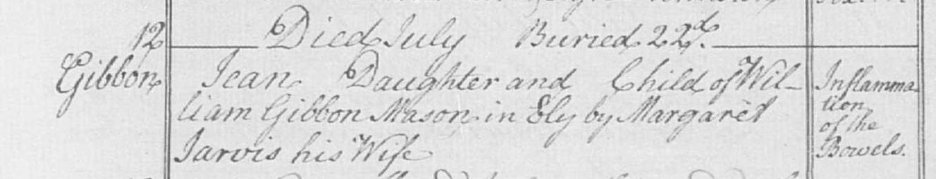 12 Died July Buried 22d.
Gibbon Jean Daughter and Child of Wil-
liam Gibbon Mason in Ely by Margaret
Jarvis his Wife
Inflamma-
tion
of the
Bowels.